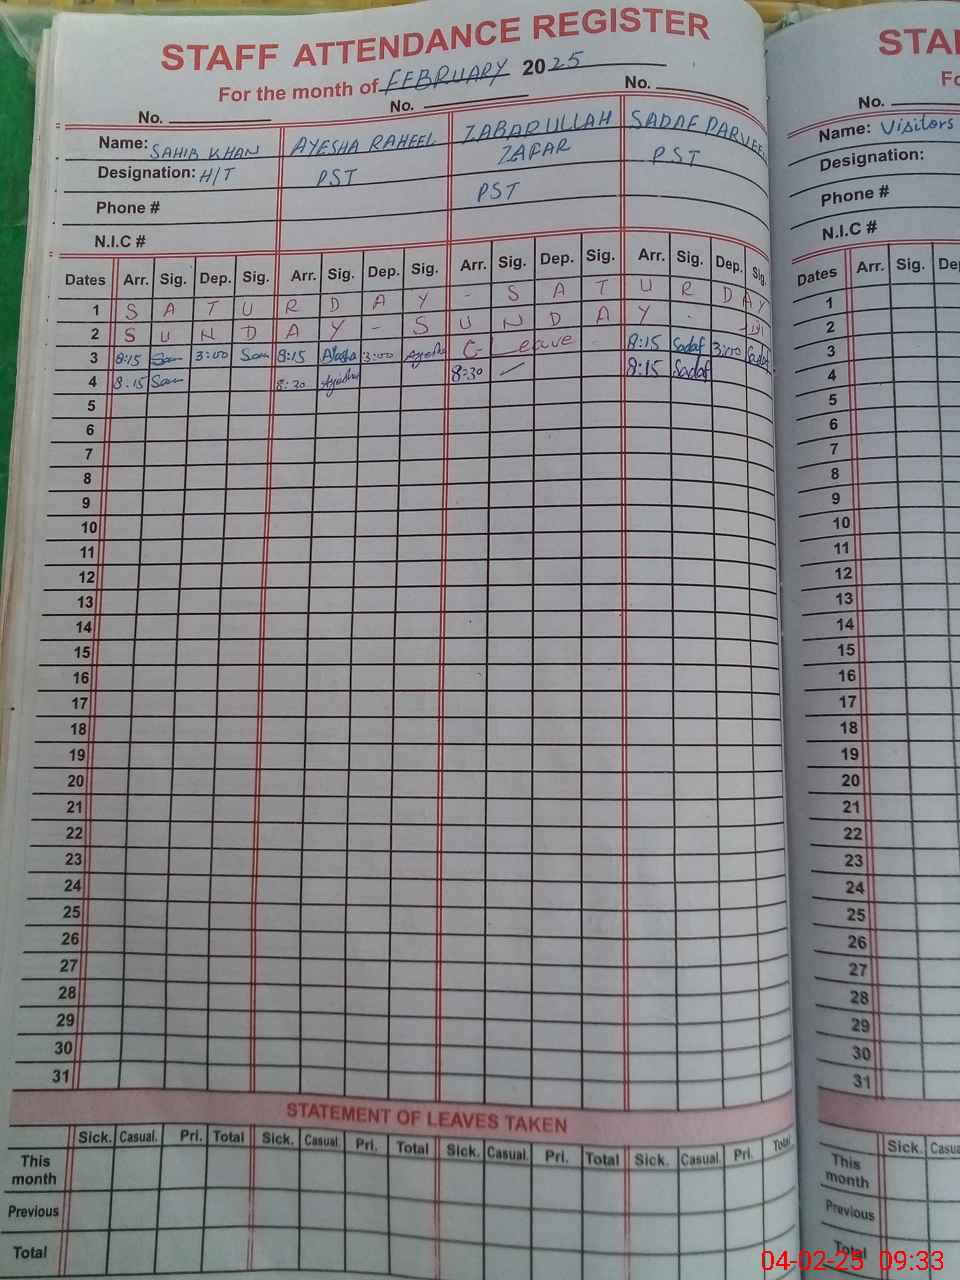 STAFF ATTENDANCE REGISTER
For the month of FEBRUARY 2025
No. No. No.
Name: SAHIB KHAN AYESHA RAHEEL ZABARULLAH ZAFAR SADAF PARVEEN
Designation: H/T PST PST PST
Phone #
N.I.C #
Dates Arr. Sig. Dep. Sig. Arr. Sig. Dep. Sig. Arr. Sig. Dep. Sig. Arr. Sig. Dep. Sig.
1 S A T U R D A Y - S A T U R D A Y
2 S U N D A Y - S U N D A Y -
3 8:15 3:00 8:15 Ayesha 3:00 Ayesha C- Leave - 8:15 Sadaf 3:00 Sadaf
4 8:15 8:30 Ayesha 8:30 8:15 Sadaf
5
6
7
8
9
10
11
12
13
14
15
16
17
18
19
20
21
22
23
24
25
26
27
28
29
30
31
STATEMENT OF LEAVES TAKEN
Sick. Casual. Pri. Total Sick. Casual Pri. Total Sick. Casual. Pri. Total Sick. Casual. Pri. Total
This month
Previous
Total
STA
Fo
No.
Name: Visitors
Designation:
Phone #
N.I.C #
Dates Arr. Sig. De
1
2
3
4
5
6
7
8
9
10
11
12
13
14
15
16
17
18
19
20
21
22
23
24
25
26
27
28
29
30
31
Sick. Casua
This month
Previous
Total
04-02-25 09:33